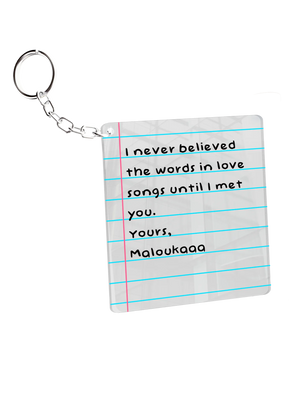 I never believed
the words in love
songs until I met
you.
Yours,
Maloukaaa